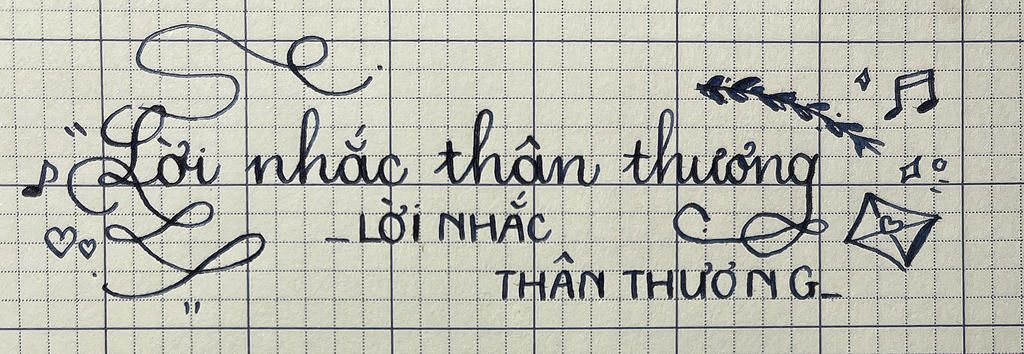 Lời nhắc thân thương
_LỜI NHẮC
THÂN THƯƠNG_